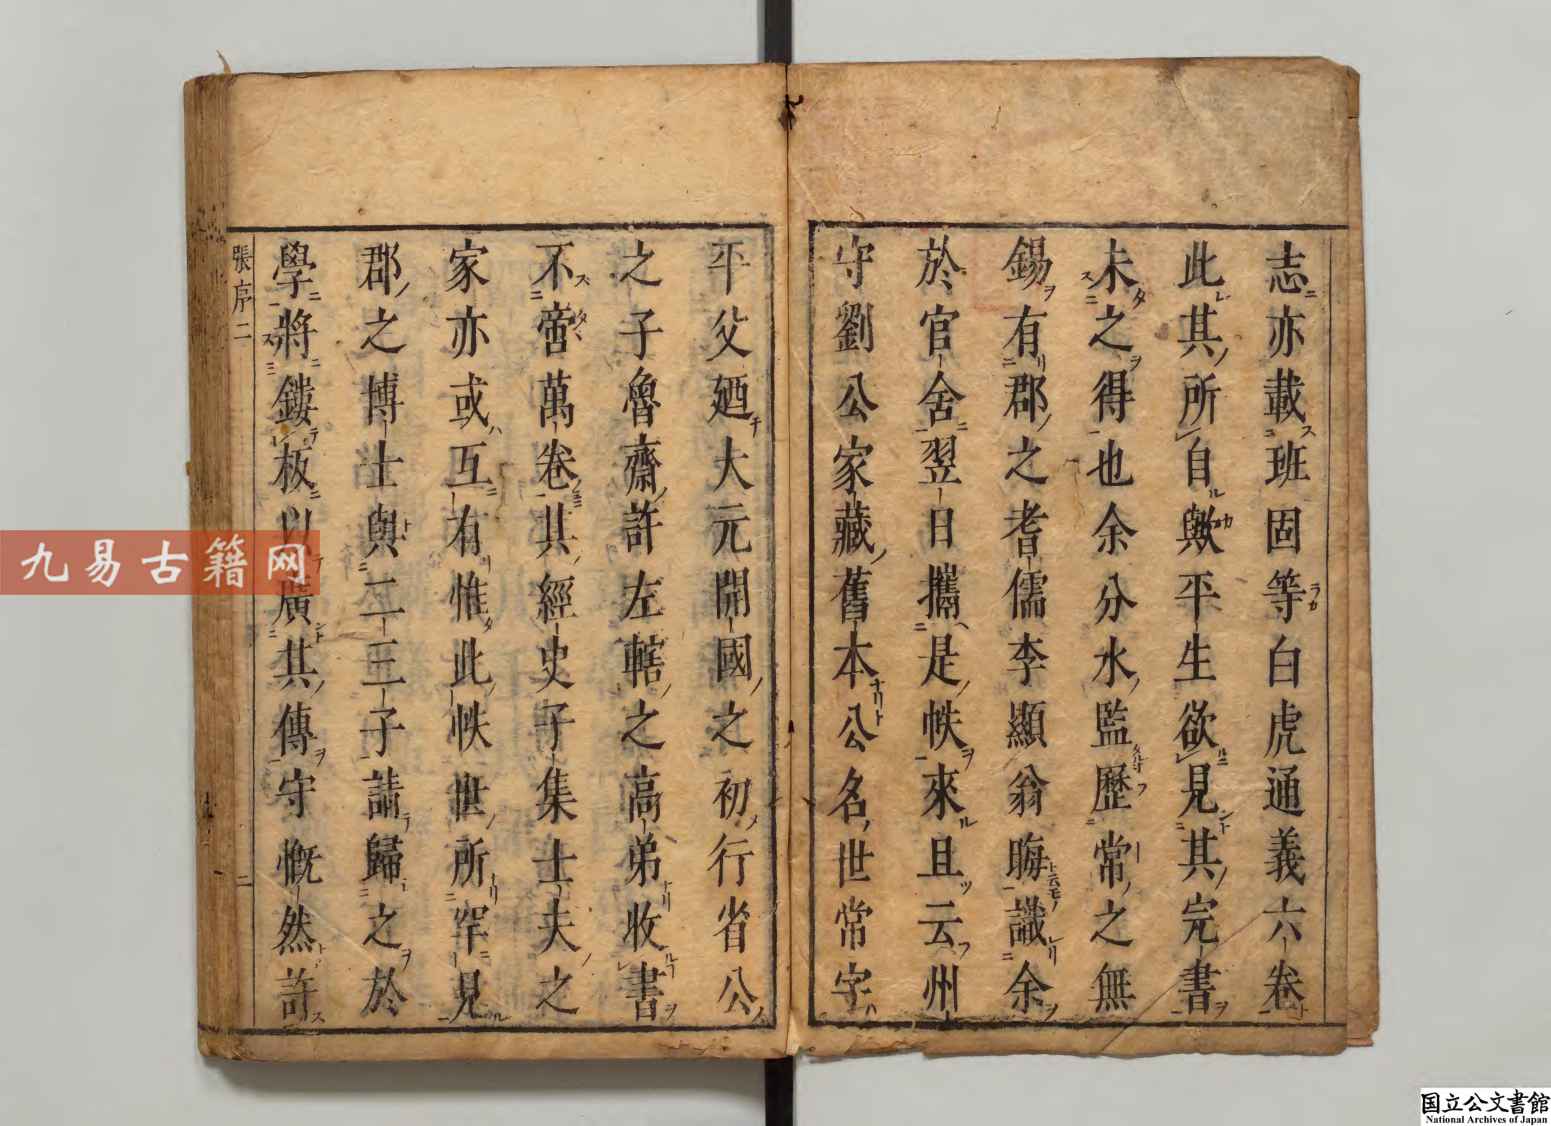 志亦載班固等白虎通義六卷
此其所自歟平生欲見其完書
未之得也余分水監歷常之無
錫有郡之耆儒李顯翁晦識余
於官舍翌日攜是帙來且云州
守劉公家藏舊本公名世常字
平父廼大元開國之初行省公
之子魯齋許左轄之高弟收書
不啻萬卷其經史子集士夫之
家亦或互有惟此帙世所罕見
郡之博士與二三子請歸之於
學將鏤板以廣其傳守慨然許
張序二
二
九易古籍网
国立公文書館
National Archives of Japan